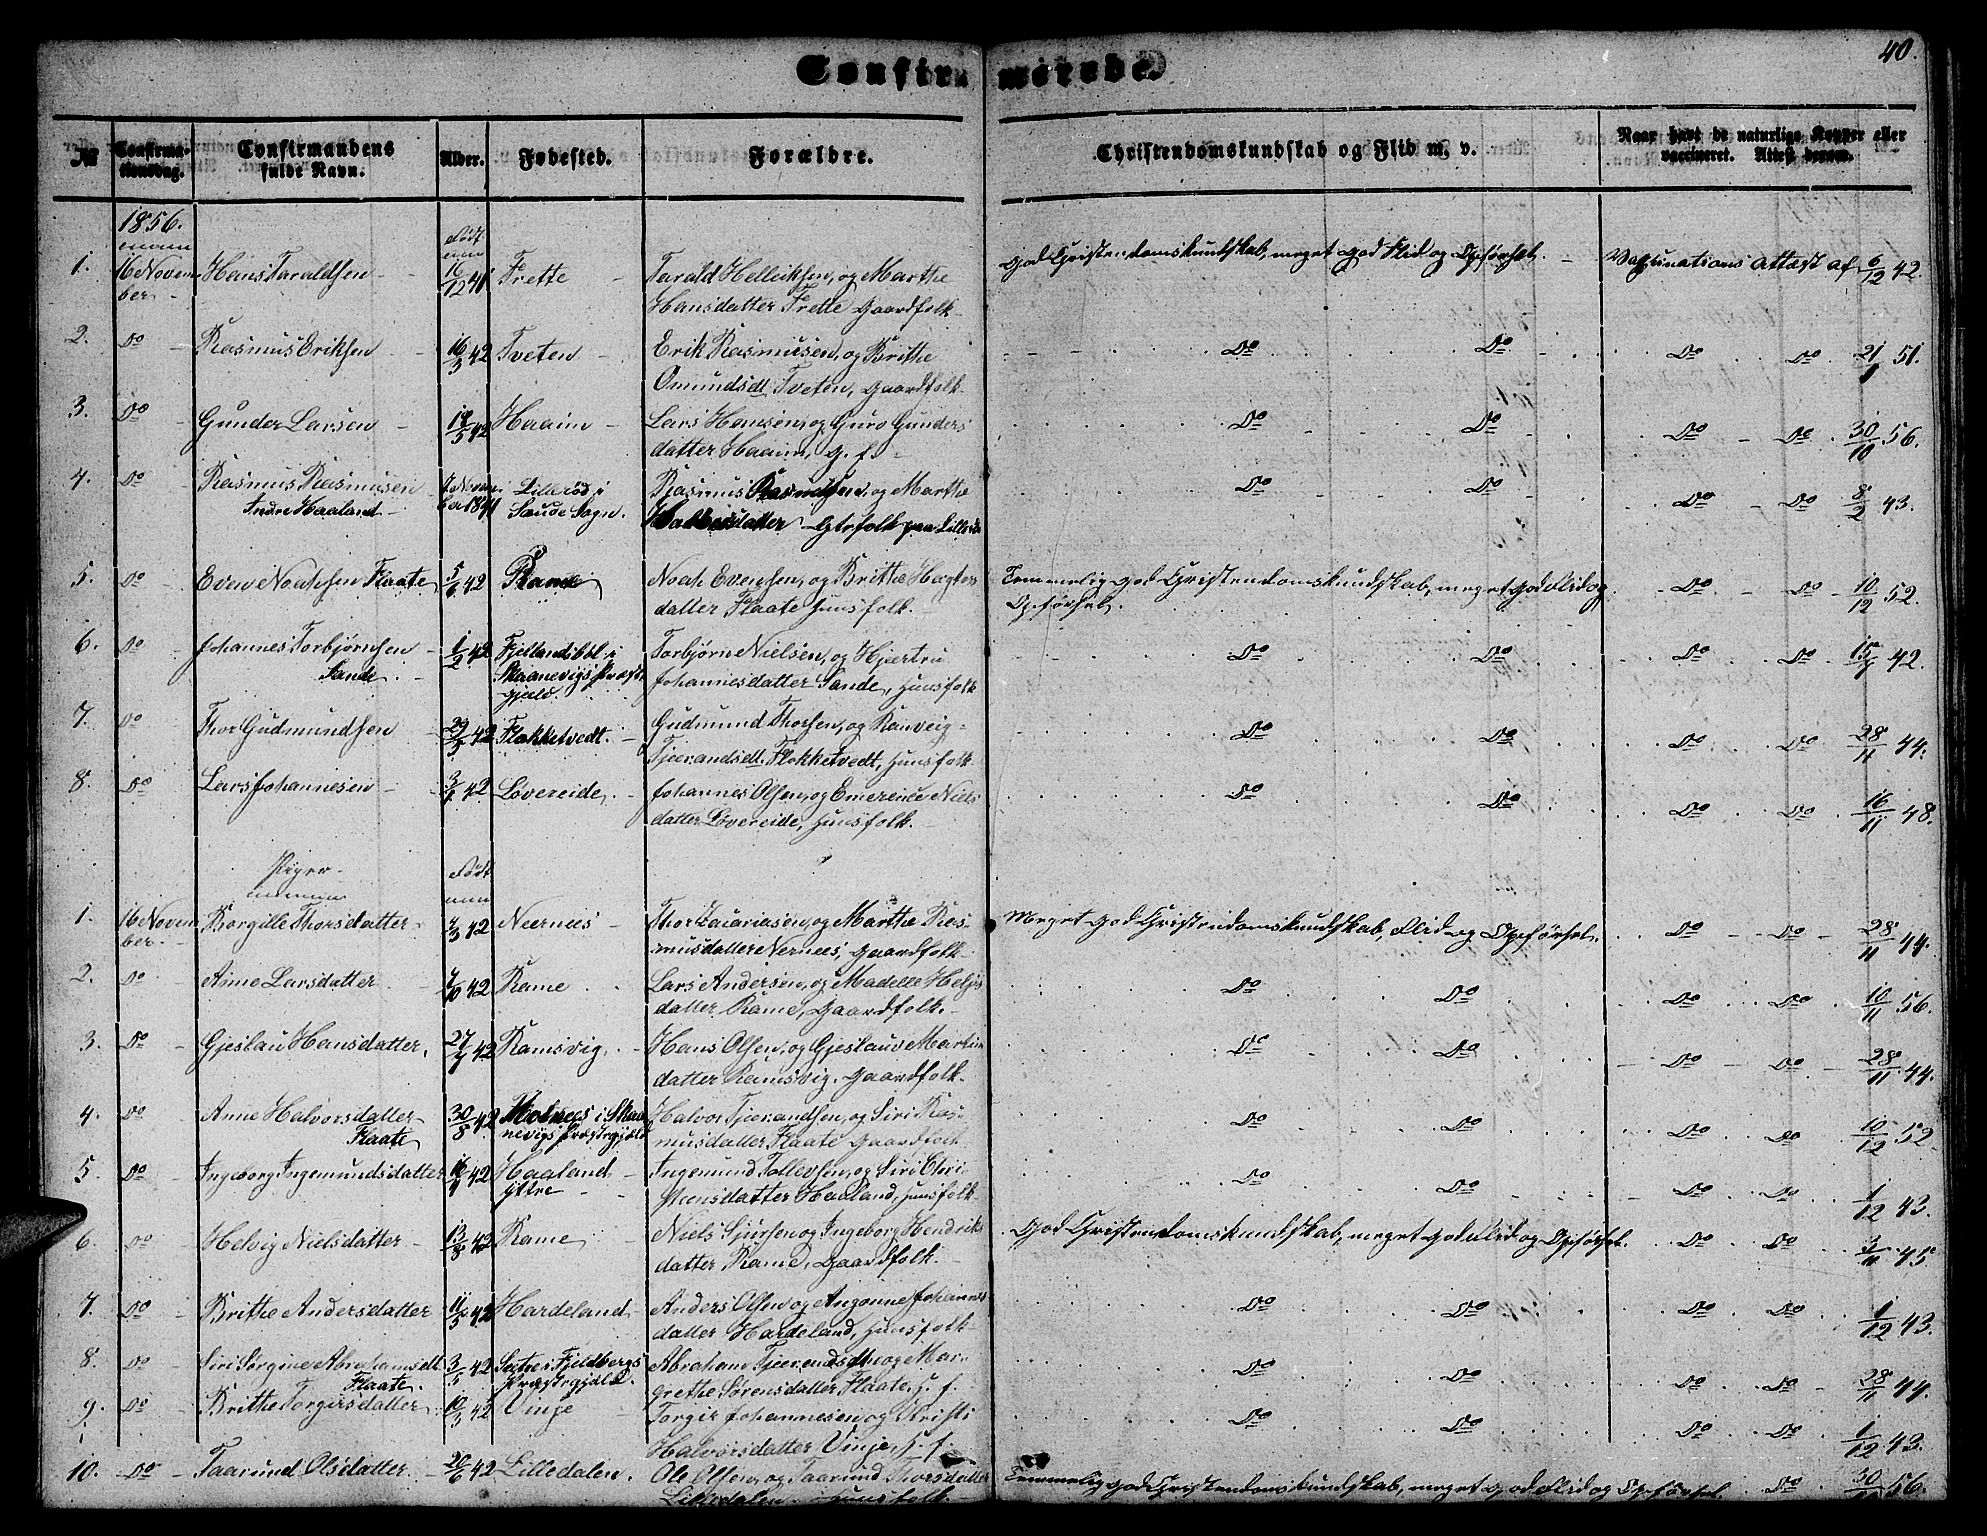 40.
Confirmerede.
№ Confirmationsdag. Confirmandens fulde Navn. Alder. Fødested. Forældre. Christendomskundskab og Flid m. v. Naar havt de naturlige Kopper eller vaccineret. Attest derom.
1856.
Født
1. 16 Novem Hans Taraldsen 16/12 41 Frette Tarald Helleiksen, og Marthe God Christendomskundskab, meget god Flid og Opførsel. Vaccinations Attest af 6/12 42.
ber Hansdatter Frette Gaardfolk
2. Do Rasmus Eriksen 16/3 42 Tveten Erik Rasmusen, og Brithe Do Do Do Do 21/1 51.
Omundsdt Tveten, Gaardfolk
3. Do Gunder Larsen 19/5 42 Haaim Lars Hansen, og Guro Gunders Do Do Do Do 30/10 56.
datter Haaim, G. f.
4. Do Rasmus Rasmusen 7 Novem Lillerød i Rasmus Rasmusen, og Marthe Do Do Do Do 8/2 43.
Indre Haaland ber 1841 Saude Sogn. Halvorsdatter Gbrfolk paa Lillerød
5. Do Even Noahsen Flaate 5/6 42 Rame Noah Evensen, og Brithe Hagtors Temmelig god Christendomskundskab, meget god Flid og Do Do 10/12 52.
datter Flaate Huusfolk. Opførsel.
6. Do Johannes Torbjørnsen 1/2 42 Fjellandsbøl i Torbjørn Nielsen, og Hjertru Do Do Do Do 15/7 42.
Sande Skaanevigs Præste Johannesdatter Sande, Huusfolk
gjeld.
7. Do Thor Gudmundsen 29/3 42 Flokketvedt. Gudmund Thorsen, og Ranveig Do Do Do Do 28/11 44.
Tjerandsdt. Flokketvedt, Huusfolk
8. Do Lars Johannesen 3/1 42 Løvereide Johannes Olsen, og Emerence Niels Do Do Do Do 16/11 48.
datter Løvereide, Huusfolk.
Piger Født
1. 16 Novem Borgille Thorsdatter 7/3 42 Neernees Thor Zacariasen, og Marthe Ras- Meget god Christendomskundskab, Flid og Opførsel. Do Do 28/11 44.
ber. musdatter Nernees, Gaardfolk
2. Do Anne Larsdatter 7/10 42 Rame Lars Andersen, og Madelle Helje Do Do Do Do 10/11 56.
datter Rame, Gaardfolk.
3. Do Gjeslau Hansdatter, 27/7 42 Ramsvig, Hans Olsen, og Gjeslauv Martin Do Do Do Do 28/11 44.
datter Ramsvig. Gaardfolk.
4. Do Anne Halvorsdatter 30/8 42 Molnees i Skaa Halvor Tjerandsen, og Siri Ras- Do Do Do Do 10/12 52.
Flaate nevigs Præstegjeld musdatter Flaate Gaardfolk
5. Do Ingeborg Ingemundsdatter 16/9 42 Haaland Ingemund Tollevsen, og Siri Chri- Do Do Do Do 1/12 43.
ytre stensdatter Haaland, Huusfolk
6. Do Helvig Nielsdatter 13/8 42 Rame Niels Sjursen og Ingeborg Hendriks God Christendomskundskab, meget god Flid og Opførsel. Do Do 3/11 45.
datter Rame, Gaardfolk.
7. Do Brithe Andersdatter 11/5 42 Hardeland Anders Olsen og Angonne Johannes Do Do Do Do 1/12 43.
datter Hardeland, Huusfolk
8. Do Siri Sørgine Abrahamsdt 3/5 42 Sætre Fjeldbergs Abraham Tjerandsen og Mar- Do Do Do Do 28/11 44.
Flaate. Præstegjeld. grethe Sørensdatter Flaate, H. f.
9. Do Brithe Torgersdatter 10/3 42 Vinje Torgir Johannesen og Kristi Do Do Do Do 1/12 43.
Halvorsdatter Vinje, H. f.
10. Do Taarund Olsdatter 20/6 42 Lilledalen. Ole Olsen, og Taarund Thorsdatter Temmelig god Christendomskundskab, meget god Flid og Opførsel Do 30/10 56.
Lilledalen Huusfolk.